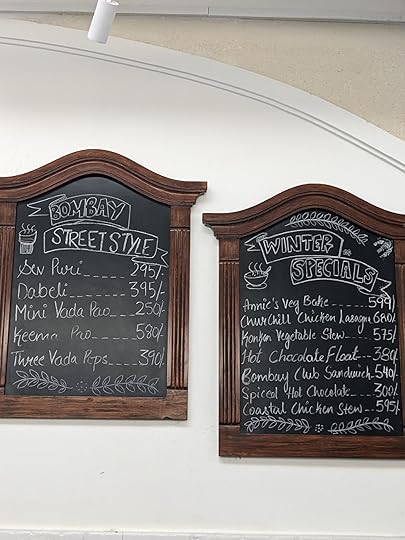 BOMBAY
STREET STYLE
Sev Puri 295/-
Dabeli 395/-
Mini Vada Pao 250/-
Keema Pao 580/-
Three Vada Pops 390/-
WINTER
SPECIALS
Annie's Veg Bake 599/-
Churchill Chicken Lasagna 680/-
Konkan Vegetable Stew 575/-
Hot Chocolate Float 380/-
Bombay Club Sandwich 540/-
Spiced Hot Chocolate 300/-
Coastal Chicken Stew 595/-